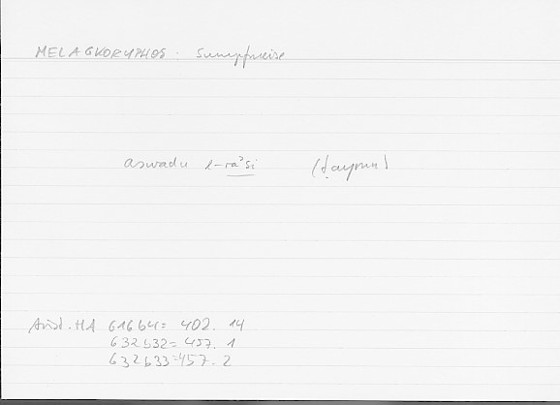 MELAGKORYPHOS - Sumpfmeise
aswadu l-raʾsi (ṭayrun)
Arist. HA 616b4 = 402. 14
632b32 = 457. 1
632b33 = 457. 2